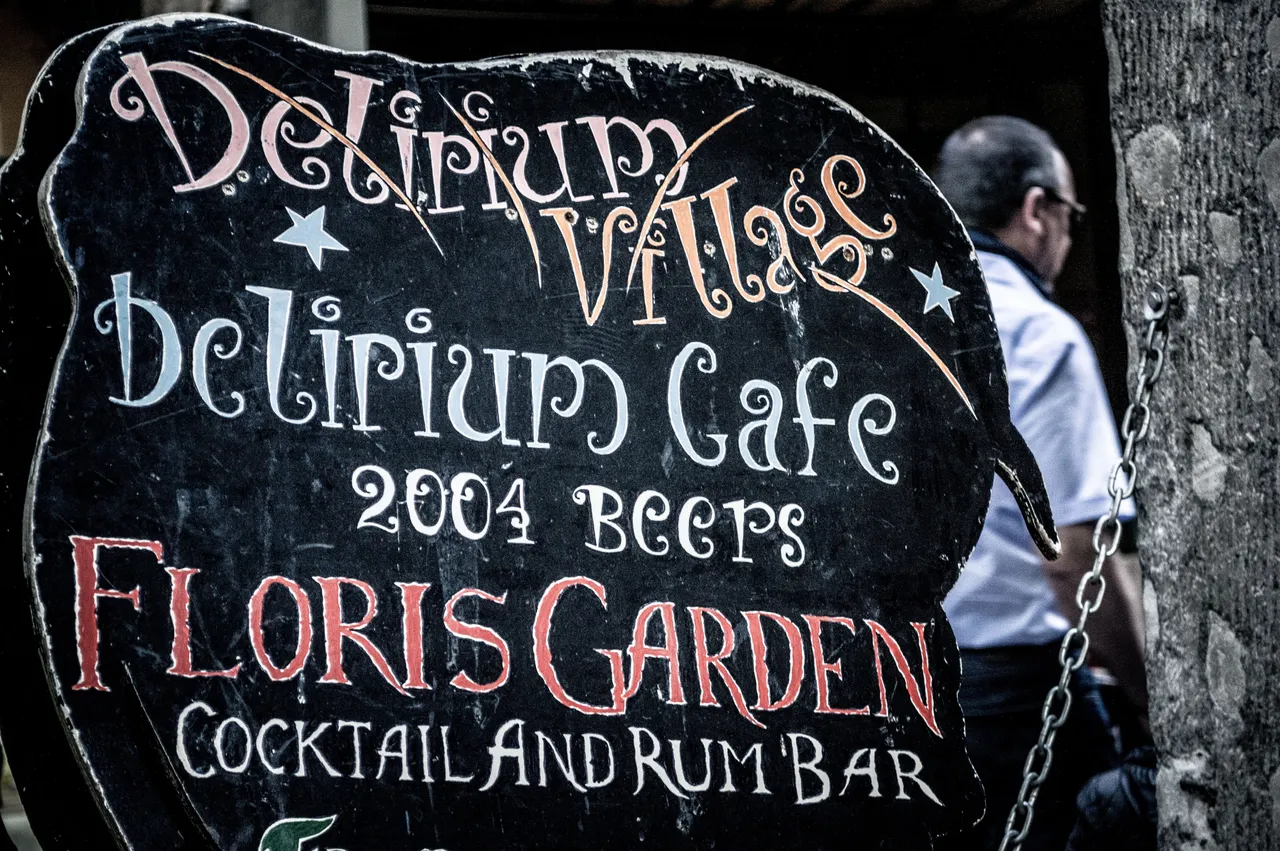 Delirium
Village
Delirium Cafe
2004 Beers
FLORIS GARDEN
COCKTAIL AND RUM BAR